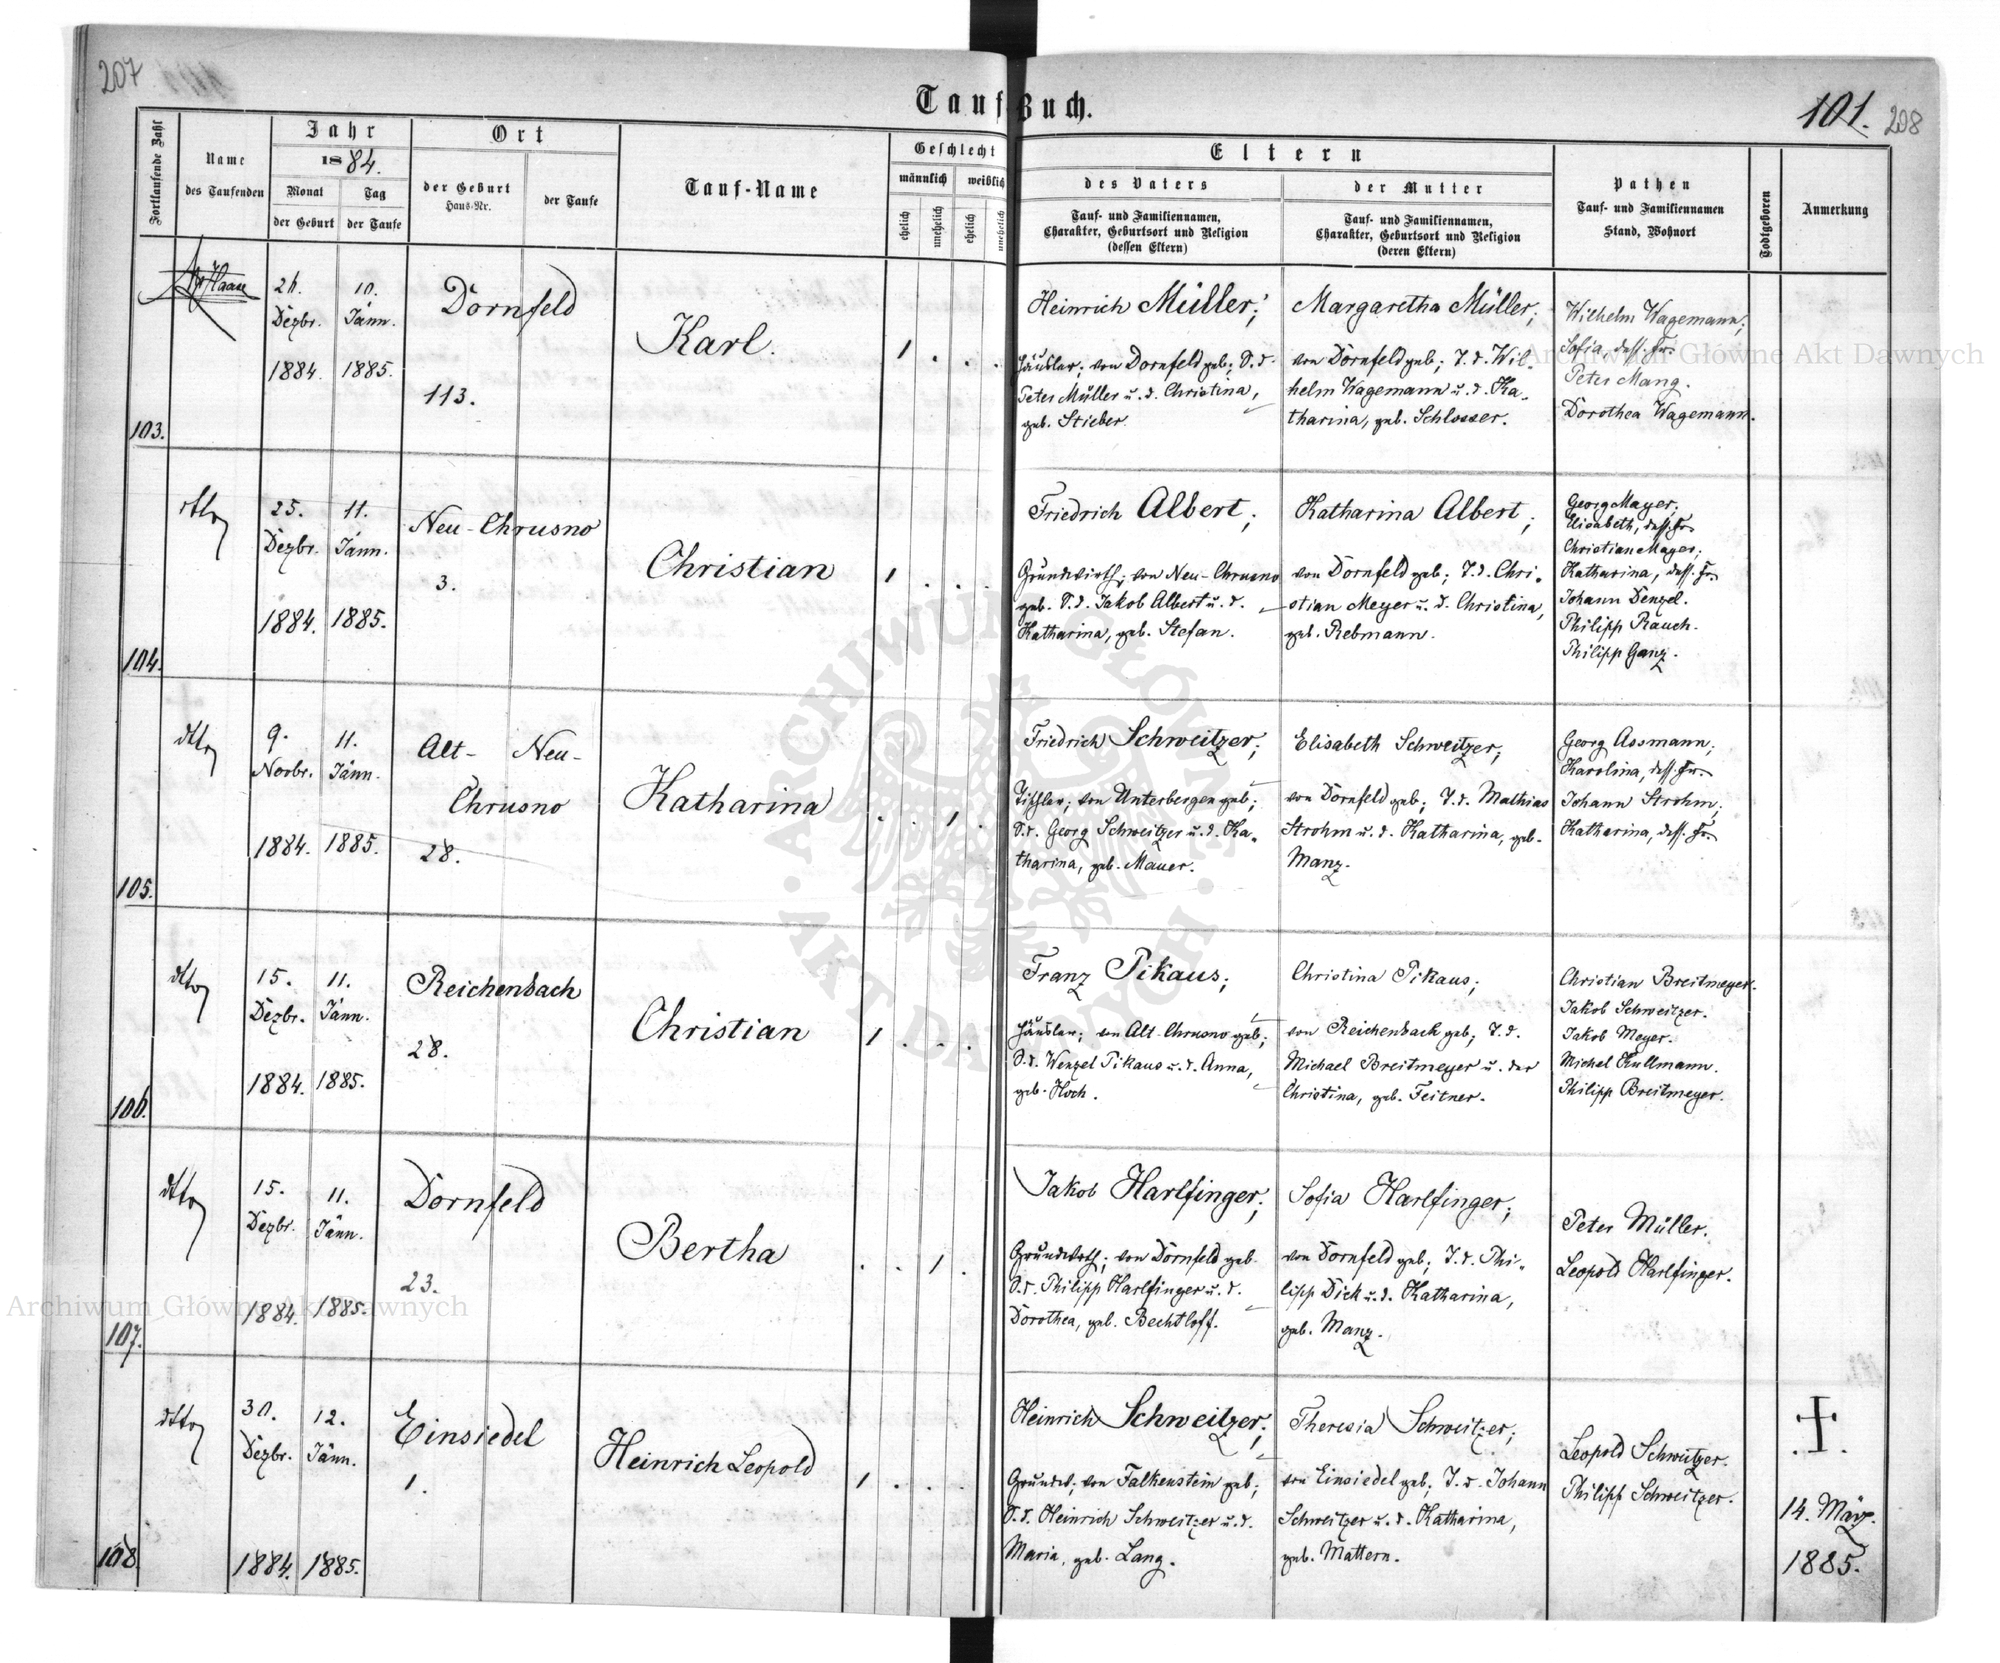 207
Taufbuch.
101.
208
Fortlaufende Zahl
Name
des Taufenden
Jahr
1884.
Monat
der Geburt
Tag
der Taufe
Ort
der Geburt
Haus-Nr.
der Taufe
Tauf-Name
Geschlecht
männlich
weiblich
ehelich
unehelich
ehelich
unehelich
Eltern
des Vaters
Tauf- und Familiennamen,
Charakter, Geburtsort und Religion
(dessen Eltern)
der Mutter
Tauf- und Familiennamen,
Charakter, Geburtsort und Religion
(deren Eltern)
Pathen
Tauf- und Familiennamen
Stand, Wohnort
Todtgeboren
Anmerkung
103.
Dezbr.
1884.
10.
Jänn.
1885.
Dornfeld
113.
Karl.
1 . . .
Heinrich Müller;
Häusler; von Dornfeld geb; S. d.
Peter Müller u. d. Christina,
geb. Stieber.
Margaretha Müller;
von Dornfeld geb; T. d. Wil-
helm Wagemann u. d. Ka-
tharina, geb. Schlosser.
Wilhelm Wagemann;
Sofia, dess. Fr.
Peter Mang.
Dorothea Wagemann.
104.
dtto
25.
Dezbr.
1884.
11.
Jänn.
1885.
Neu-Chrusno
3.
Christian
1 . . .
Friedrich Albert;
Grundwirth; von Neu-Chrusno
geb. S. d. Jakob Albert u. d.
Katharina, geb. Stefan.
Katharina Albert;
von Dornfeld geb; T. d. Chri-
stian Meyer u. d. Christina,
geb. Rebmann.
Georg Mayer;
Elisabeth, dess. Fr.
Christian Mayer;
Katharina, dess. Fr.
Johann Denzel.
Philipp Rauch.
Philipp Ganz.
105.
dtto
9.
Novbr.
1884.
11.
Jänn.
1885.
Alt- Neu-
Chrusno
28.
Katharina
. . 1 .
Friedrich Schweitzer;
Tischler; von Unterbergen geb;
S. d. Georg Schweitzer u. d. Ka-
tharina, geb. Mauer.
Elisabeth Schweitzer;
von Dornfeld geb; T. d. Mathias
Strohm u. d. Katharina, geb.
Manz.
Georg Assmann;
Karolina, dess. Fr.
Johann Strohm;
Katharina, dess. Fr.
106.
dtto
15.
Dezbr.
1884.
11.
Jänn.
1885.
Reichenbach
28.
Christian
1 . . .
Franz Pikaus;
Häusler; von Alt-Chrusno geb;
S. d. Wenzel Pikaus u. d. Anna,
geb. Hoch.
Christina Pikaus;
von Reichenbach geb; T. d.
Michael Breitmeyer u. der
Christina, geb. Feitner.
Christian Breitmeyer.
Jakob Schweitzer.
Jakob Meyer.
Michel Kullmann.
Philipp Breitmeyer.
107.
dtto
15.
Dezbr.
1884.
11.
Jänn.
1885.
Dornfeld
23.
Bertha
. . 1 .
Jakob Harlfinger;
Grundwirth; von Dornfeld geb.
S. d. Philipp Harlfinger u. d.
Dorothea, geb. Bechtloff.
Sofia Harlfinger;
von Dornfeld geb; T. d. Phi-
lipp Dick u. d. Katharina,
geb. Manz.
Peter Müller.
Leopold Harlfinger.
108.
dtto
30.
Dezbr.
1884.
12.
Jänn.
1885.
Einsiedel
1.
Heinrich Leopold
1 . . .
Heinrich Schweitzer;
Grundw; von Falkenstein geb;
S. d. Heinrich Schweitzer u. d.
Maria, geb. Lang.
Theresia Schweitzer;
von Einsiedel geb; T. d. Johann
Schweitzer u. d. Katharina,
geb. Mattern.
Leopold Schweitzer.
Philipp Schweitzer.
14. März.
1885.
Archiwum Główne Akt Dawnych
Archiwum Główne Akt Dawnych
ARCHIWUM GŁÓWNE · AKT DAWNYCH ·